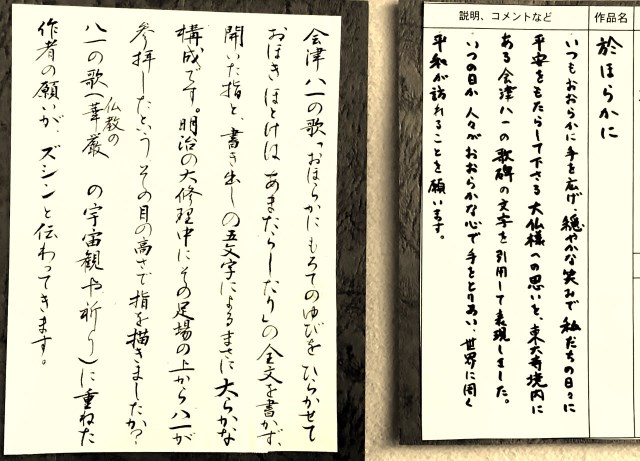 会津八一の歌「おほらかにもろてのゆびをひらかせて
おほきほとけはあまたらしたり」の全文を書かず、
開いた指と、書き出しの五文字によるまさに大らかな
構成です。明治の大修理中にその足場の上から八一が
参拝したという その目の高さで指を描きましたか?
八一の歌(華厳 仏教の の宇宙観や祈り)に重ねた
作者の願いが、ズシンと伝わってきます。
作品名
於ほらかに
説明、コメントなど
いつもおおらかに手を広げ、穏やかな笑みで私たちの日々に
平安をもたらして下さる大仏様への思いを、東大寺境内に
ある会津八一の歌碑の文字を引用して表現しました。
いつの日か人々がおおらかな心で手をとりあい、世界に開く
平和が訪れることを願います。